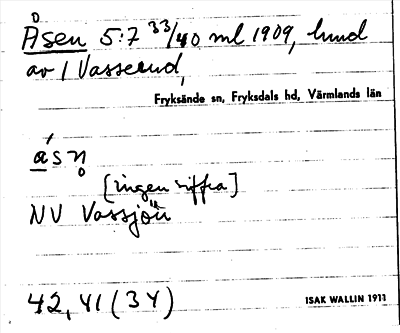 Åsen 5:7 33/40 ml 1909, lund
av 1 Vasserud,
Fryksände sn, Fryksdals hd, Värmlands län
åsn̥
[ingen siffra]
NV Vassjön
42, 41 (34)
ISAK WALLIN 1911